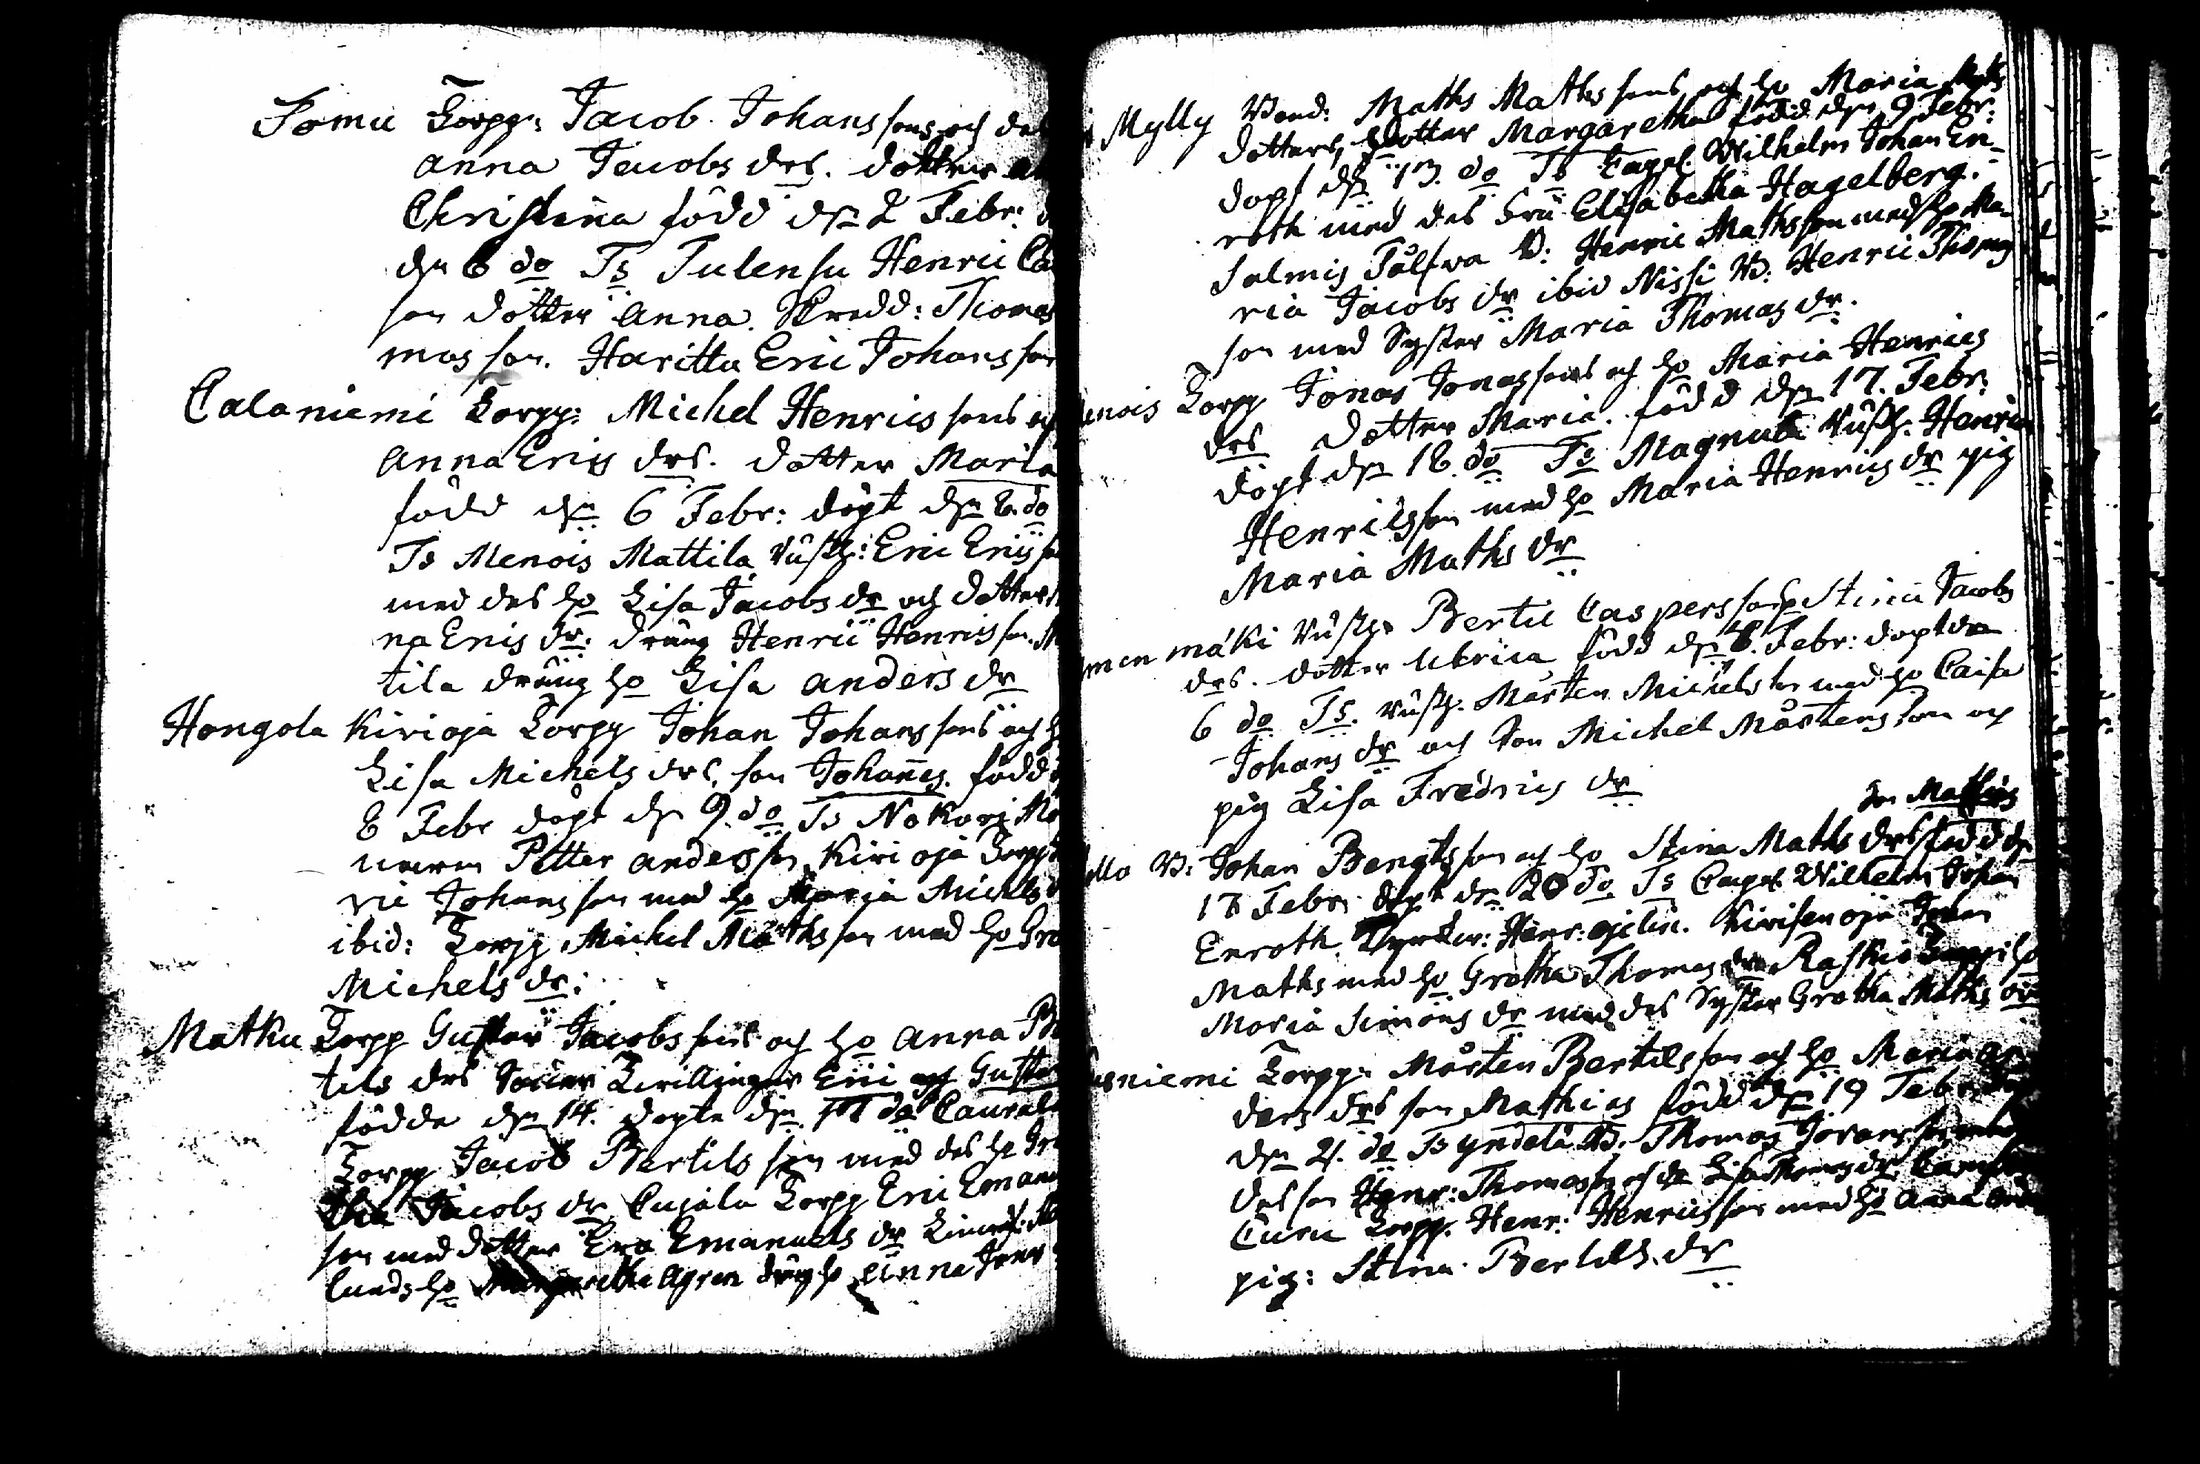 Somu Torpp: Jacob Johans sons och des
Anna Jacobs drs. dotter
Christina född dn 2 Febr:
dn 6 do Ts Julensu Henric
son dotter Anna. Skredd: Thomas
mas son. Haritta Eric Johans son
Calaniemi Torpp: Michel Henrics sons och
Anna Erics drs. dotter Maria
född dn 6 Febr: döpt dn 8. do
Ts Menois Mattila Bußh: Eric Erics
med des ho Lisa Jacobs dr och dotter
na Erics dr. dräng Henric Henrics son.
tila dräng ho Lisa Anders dr
Hongola Kirioja Torpp Johan Johans sons och
Lisa Michels drs. son Johannes. född
8 Febr döpt dn 9. do Ts Nokari
Petter Anders son Kirioja Torpp
ric Johans son med ho Maria Michels
ibid: Torpp Michel Maths son med ho Gre
Michels dr:
Matku Torpp Gustav Jacobs sons och ho Anna
tils drs Söner Tvillingar Eric och Gustav
födde dn 14. döpte dn do
Torpp Jacob Bertils son med des ho Gre
tha Jacobs dr Cujala Torpp Eric Emanu
son med dotter Eva Emanuels dr
lunds ho Margaretha Ågren ho Anna
Mylly Bond: Maths Maths sons och ho Maria Maths
dotters, dotter Margaretha född dn 9 Febr:
döpt dn 13. do Ts Capel. Wilhelm Johan En-
roth med des Fru Elisabetha Hagelberg.
Salmis B: Henric Maths son med ho Ma-
ria Jacobs dr ibid Nissi B: Henric Thomas
son med Syster Maria Thomas dr.
enois Torpp Jonas Jonas sons och ho Maria Henrics
drs dotter Maria. född dn 17. Febr:
döpt dn 18. do Ts Magnula Bußh. Henric
Henrics son med ho Maria Henrics dr pig
Maria Maths dr
men mäki Bußh. Bertil Caspers son ho Stina Jacobs
drs. dotter Ulrica född dn Febr: döpt dn
6 do Ts. Bußh. Mårten Michels son med ho Caisa
Johans dr och Son Michel Mårtens son och
pig Lisa Fredrics dr
son Mathias
B: Johan Bengts son och ho Stina Maths drs född dn
18 Febr: döpt dn 20 do Ts Capel. Wilhelm Johan
Enroth. Henr: Kirisenoja Johan
Maths med ho Gretha Thomas dr Raskio Torpp: ho
Maria Simons dr med des Syster Gretha Maths dr
niemi Torpp: Mårten Bertils son och ho Maria An
ders drs son Mathias född dn 19 Febr.
dn 21. do Ts Yndelä B. Thomas Jörans son med
des son Henr: Thomas son och dr Lisa Thomas dr
Curu Torpp. Henr: Henrics son med ho Anna
pig: Stina Bertils dr